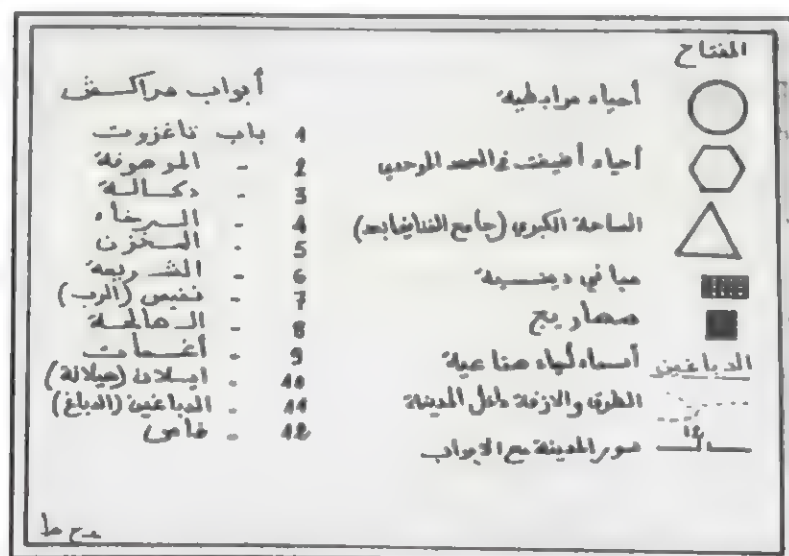 المفتاح
أحياء مرابطية
أحياء أضيفت في العهد الموحدي
الساحة الكبرى (جامع الفنا فيما بعد)
مباني دينية
صهاريج
الدباغين أسماء أحياء صناعية
الطرق والازقة داخل المدينة
12 سور المدينة مع الابواب
أبواب مراكش
1 باب تاغزوت
2 - الموهوفة
3 - دكالة
4 - الرخاء
5 المخزن
6 - الشريعة
7 - نفيس (الرب)
8 - الصالحة
9 - أغمات
10 - ايلان (هيلانة)
11 - الدباغين (الدباغ)
12 - فاس